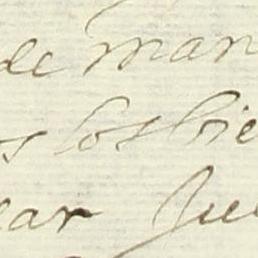 de man
s los bie
ear Jue